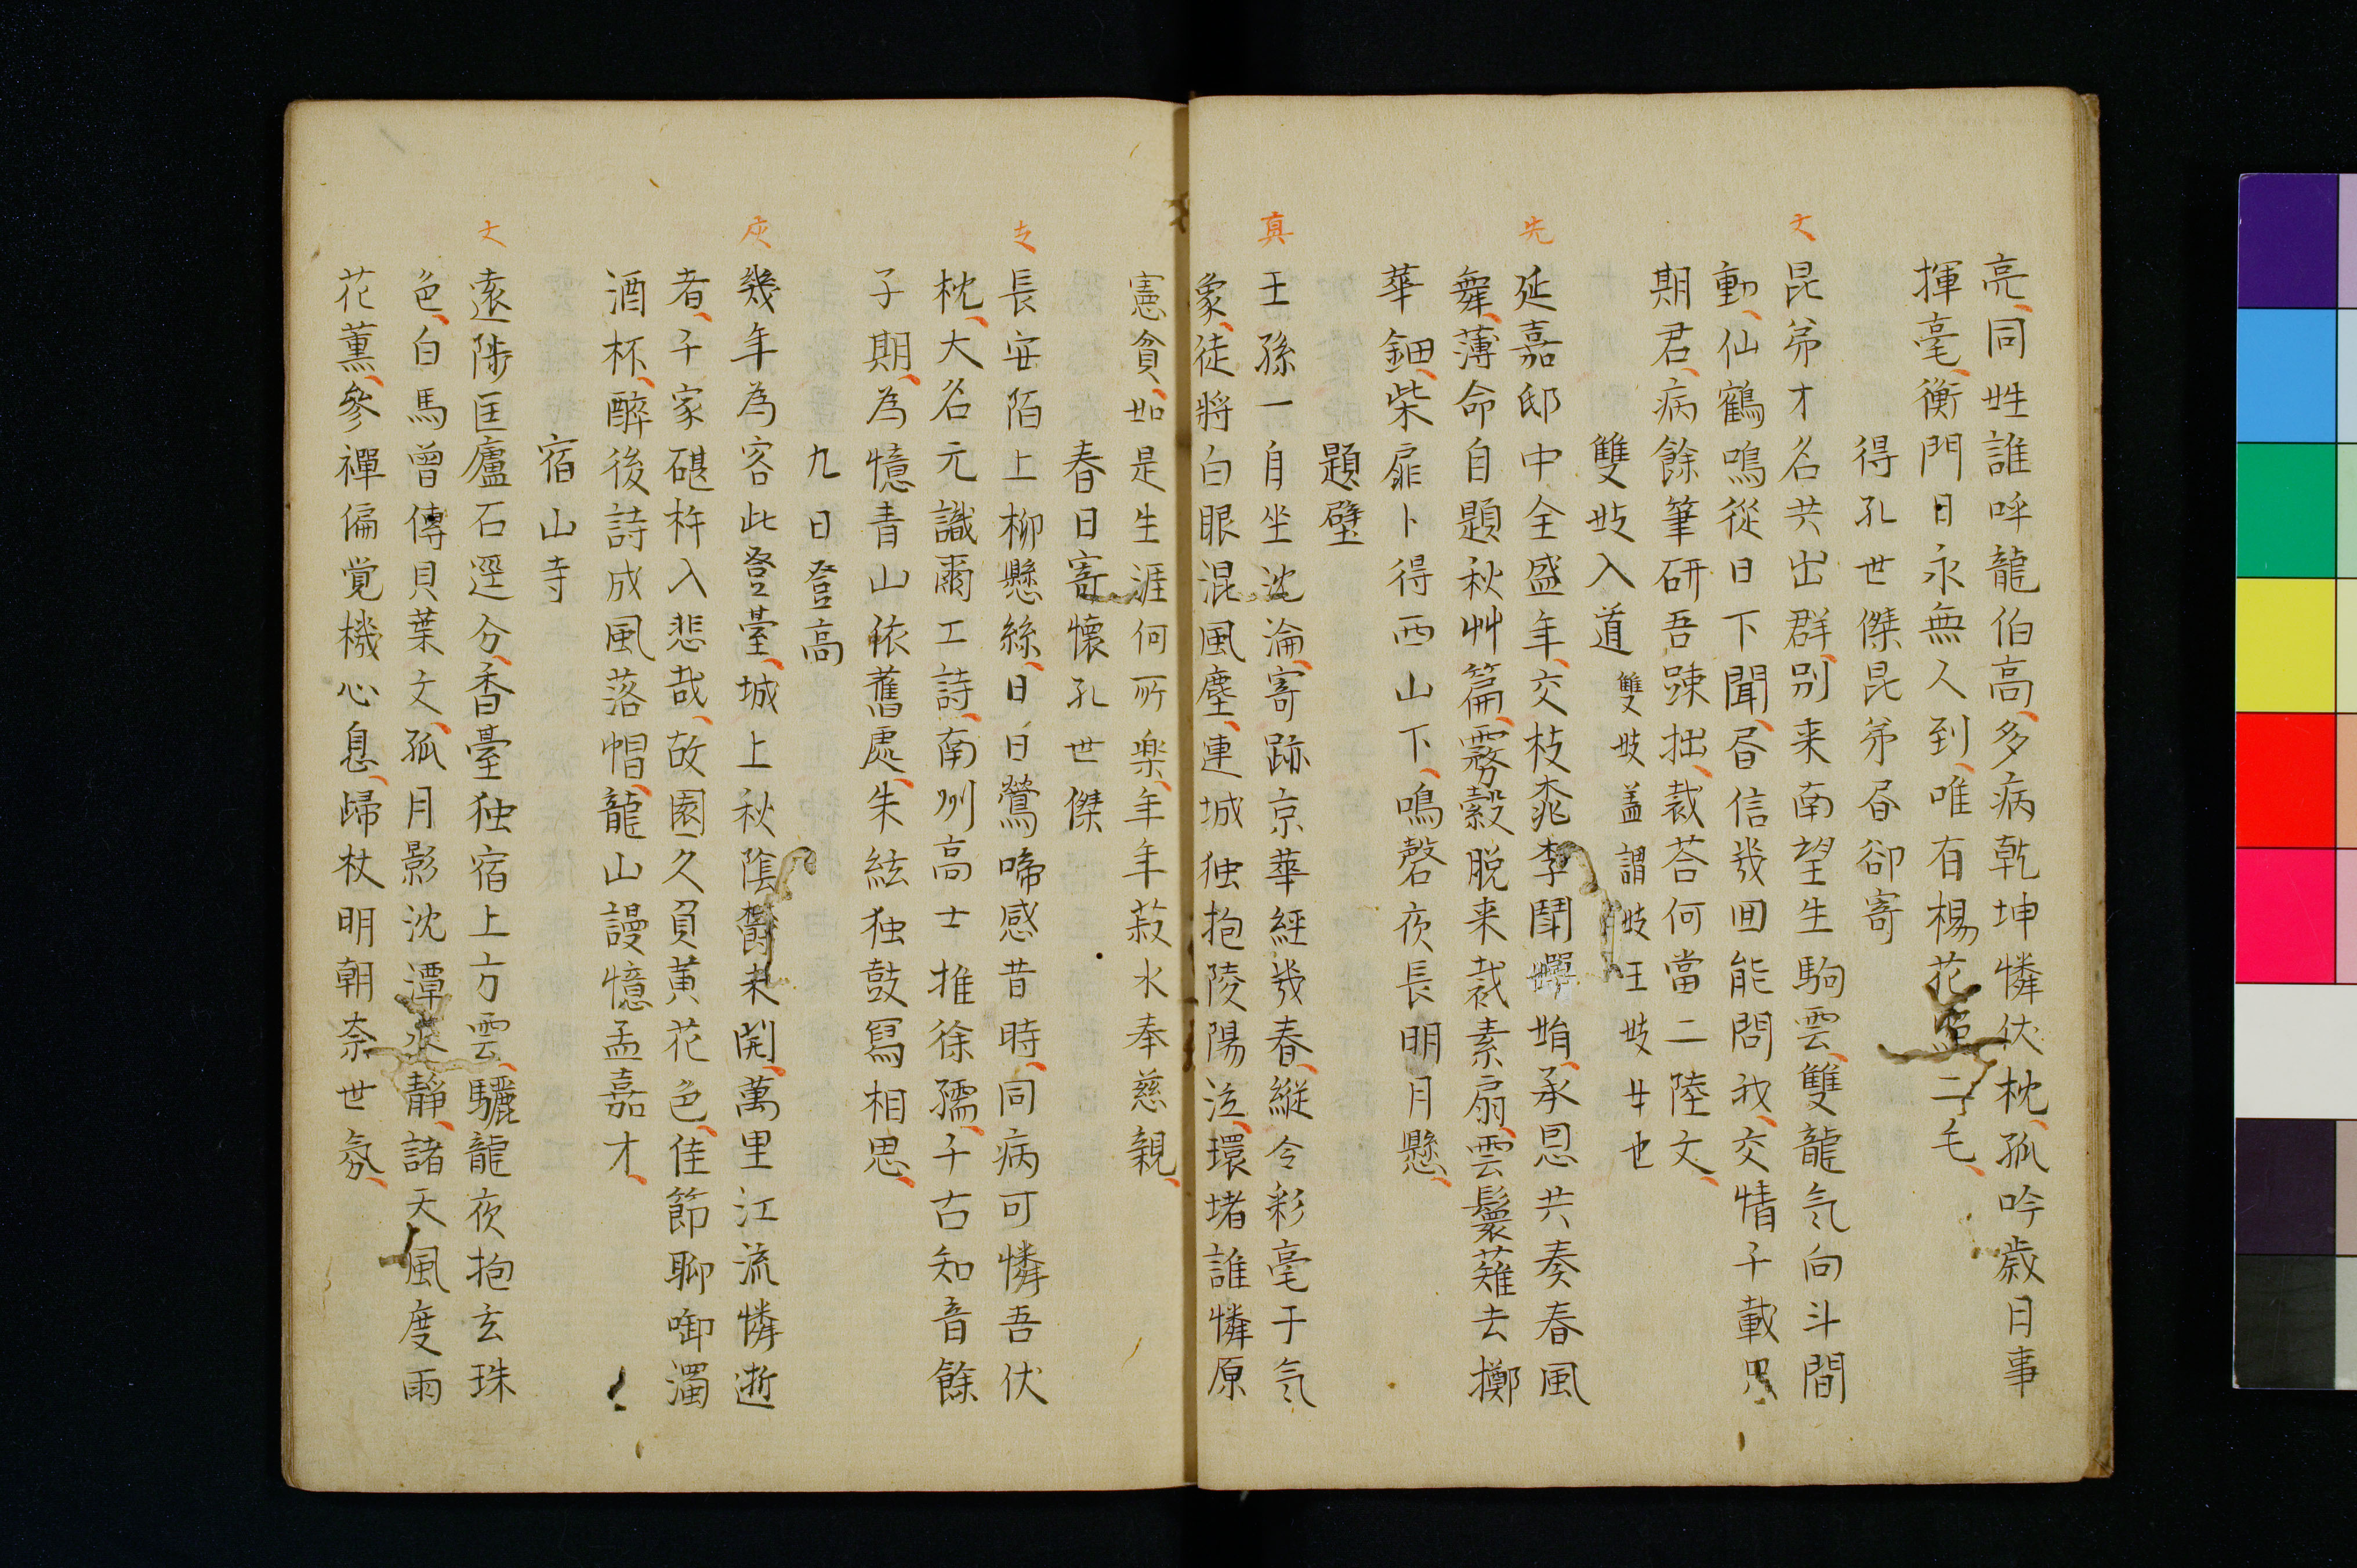 亮同姓誰呼龍伯高多病乾坤憐伏枕孤吟歳日事
揮毫衡門日永無人到唯有楊花二毛
得孔世傑昆弟昼卻寄
文
昆弟才名共出群別来南望生駒雲雙龍气向斗間
動仙鶴鳴從日下聞昼信幾回能問我交情千載只
期君病餘筆研吾踈拙裁荅何當二陸文
雙妓入道
雙妓盖謂妓王妓女也
先
延嘉邸中全盛年交枝桃李鬪嬋娟承恩共奏春風
舞薄命自題秋艸篇霧縠脱来裁素扇雲鬟薙去擲
華鈿柴扉卜得西山下鳴磬夜長明月懸
題壁
真
王孫一自坐沈淪寄跡京華經幾春縦令彩毫干气
象徒將白眼混風塵連城独抱陵陽泣環堵誰憐原
憲貧如是生涯何所楽年年菽水奉慈親
春日寄懷孔世傑
支
長安陌上柳懸絲日日鶯啼感昔時同病可憐吾伏
枕大名元識爾工詩南州高士推徐孺千古知音餘
子期為憶青山依舊處朱絃独鼓寫相思
九日登高
灰
幾年為客此登臺城上秋陰欝未開萬里江流憐逝
者千家碪杵入悲哉故園久負黄花色佳節聊啣濁
酒杯醉後詩成風落帽龍山謾憶孟嘉才
宿山寺
文
遠陟匡廬石逕分香臺独宿上方雲驪龍夜抱玄珠
色白馬曾傳貝葉文孤月影沈潭水靜諸天風度雨
花薫參禪偏覚機心息歸杖明朝奈世氛